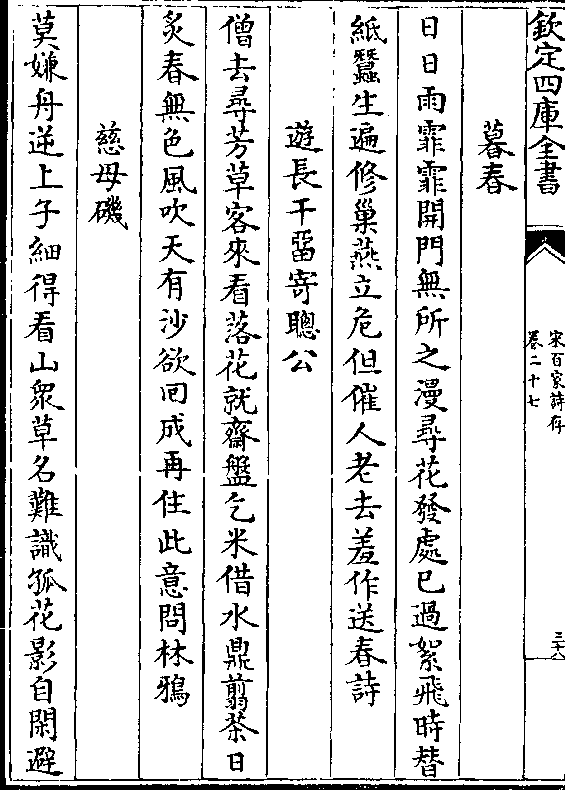 欽定四庫全書
宋百家詩存
卷二十七
三十八
暮春
日日雨霏霏開門無所之漫尋花發處已過絮飛時替
紙蠶生遍修巢燕立危但催人老去羞作送春詩
遊長干畱寄聰公
僧去尋芳草客來看落花就齋盤乞米借水鼎翦茶日
炙春無色風吹天有沙欲囘成再住此意問林鴉
慈母磯
莫嫌舟逆上子細得看山衆草名難識孤花影自閑避